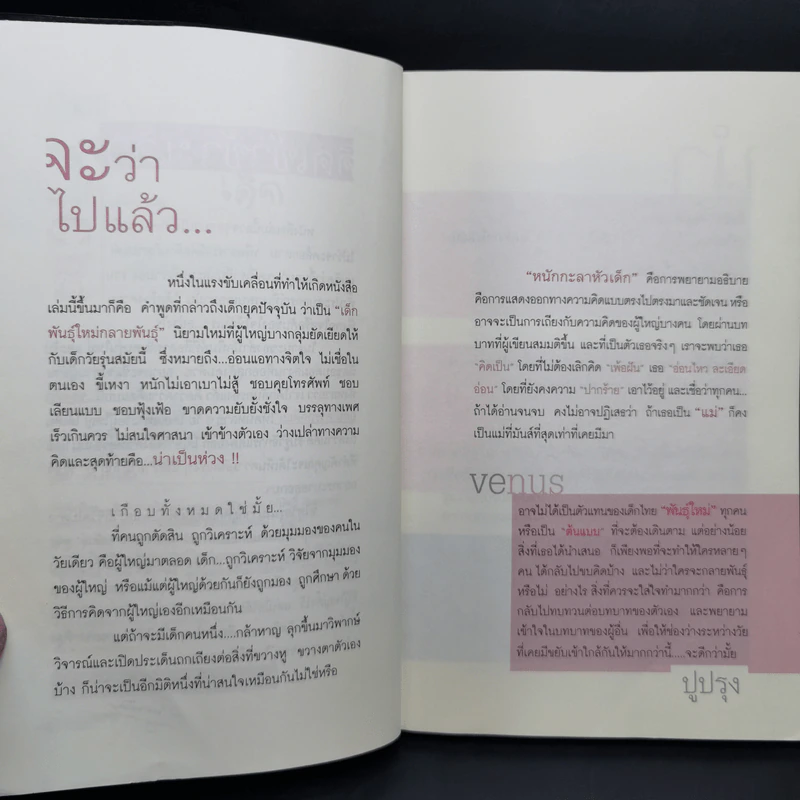 จะว่า
ไปแล้ว...
หนึ่งในแรงขับเคลื่อนที่ทำให้เกิดหนังสือ
เล่มนี้ขึ้นมาก็คือ คำพูดที่กล่าวถึงเด็กยุคปัจจุบัน ว่าเป็น "เด็ก
พันธุ์ใหม่กลายพันธุ์" นิยามใหม่ที่ผู้ใหญ่บางกลุ่มยัดเยียดให้
กับเด็กวัยรุ่นสมัยนี้ ซึ่งหมายถึง...อ่อนแอทางจิตใจ ไม่เชื่อใน
ตนเอง ขี้เหงา หนักไม่เอาเบาไม่สู้ ชอบคุยโทรศัพท์ ชอบ
เลียนแบบ ชอบฟุ้งเฟ้อ ขาดความยับยั้งชั่งใจ บรรลุทางเพศ
เร็วเกินควร ไม่สนใจศาสนา เข้าข้างตัวเอง ว่างเปล่าทางความ
คิดและสุดท้ายคือ...น่าเป็นห่วง !!
เกือบทั้งหมดใช่มั้ย...
ที่คนถูกตัดสิน ถูกวิเคราะห์ ด้วยมุมมองของคนใน
วัยเดียว คือผู้ใหญ่มาตลอด เด็ก...ถูกวิเคราะห์ วิจัยจากมุมมอง
ของผู้ใหญ่ หรือแม้แต่ผู้ใหญ่ด้วยกันก็ยังถูกมอง ถูกศึกษา ด้วย
วิธีการคิดจากผู้ใหญ่เองอีกเหมือนกัน
แต่ถ้าจะมีเด็กคนหนึ่ง....กล้าหาญ ลุกขึ้นมาวิพากษ์
วิจารณ์และเปิดประเด็นถกเถียงต่อสิ่งที่ขวางหู ขวางตาตัวเอง
บ้าง ก็น่าจะเป็นอีกมิติหนึ่งที่น่าสนใจเหมือนกันไม่ใช่หรือ
"หนักกะลาหัวเด็ก" คือการพยายามอธิบาย
คือการแสดงออกทางความคิดแบบตรงไปตรงมาและชัดเจน หรือ
อาจจะเป็นการเถียงกับความคิดของผู้ใหญ่บางคน โดยผ่านบท
บาทที่ผู้เขียนสมมติขึ้น และที่เป็นตัวเธอจริงๆ เราจะพบว่าเธอ
"คิดเป็น" โดยที่ไม่ต้องเลิกคิด "เพ้อฝัน" เธอ "อ่อนไหว ละเอียด
อ่อน" โดยที่ยังคงความ "ปากร้าย" เอาไว้อยู่ และเชื่อว่าทุกคน...
ถ้าได้อ่านจนจบ คงไม่อาจปฏิเสธว่า ถ้าเธอเป็น "แม่" ก็คง
เป็นแม่ที่มันส์ที่สุดเท่าที่เคยมีมา
venus
อาจไม่ได้เป็นตัวแทนของเด็กไทย "พันธุ์ใหม่" ทุกคน
หรือเป็น "ต้นแบบ" ที่จะต้องเดินตาม แต่อย่างน้อย
สิ่งที่เธอได้นำเสนอ ก็เพียงพอที่จะทำให้ใครหลายๆ
คน ได้กลับไปขบคิดบ้าง และไม่ว่าใครจะกลายพันธุ์
หรือไม่ อย่างไร สิ่งที่ควรจะใส่ใจทำมากกว่า คือการ
กลับไปทบทวนต่อบทบาทของตัวเอง และพยายาม
เข้าใจในบทบาทของผู้อื่น เพื่อให้ช่องว่างระหว่างวัย
ที่เคยมีขยับเข้าใกล้กันให้มากกว่านี้....จะดีกว่ามั้ย
ปูปรุง